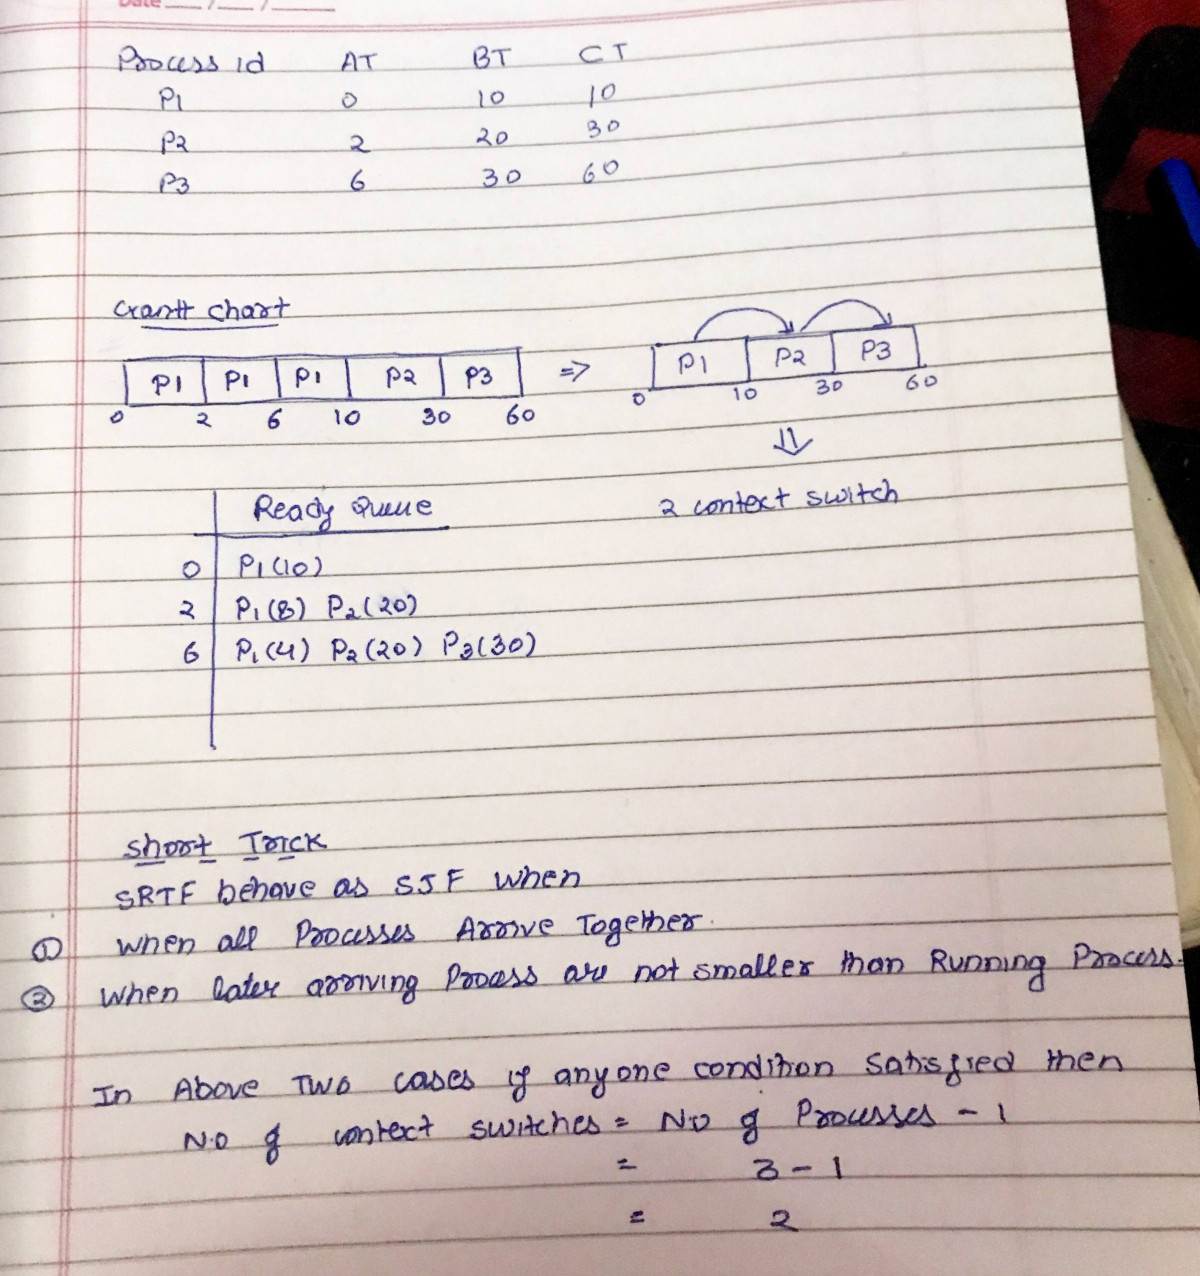 Date ___/___/____
Process id AT BT CT
P1 0 10 10
P2 2 20 30
P3 6 30 60
Gantt chart
P1 P1 P1 P2 P3 ⇒ P1 P2 P3
0 2 6 10 30 60 0 10 30 60
⇓
Ready Queue 2 context switch
0 P1(10)
2 P1(8) P2(20)
6 P1(4) P2(20) P3(30)
Short Trick
SRTF behave as SJF when
① when all Processes Arrive Together.
② when later arriving Process are not smaller than Running Process.
In Above Two cases if anyone condition Satisfied then
N.O of context switches = No of Processes - 1
= 3 - 1
= 2